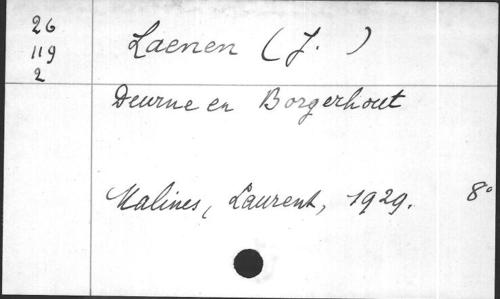 26
119
2
Laenen (J. )
Deurne en Borgerhout
Malines, Laurent, 1929. 8°